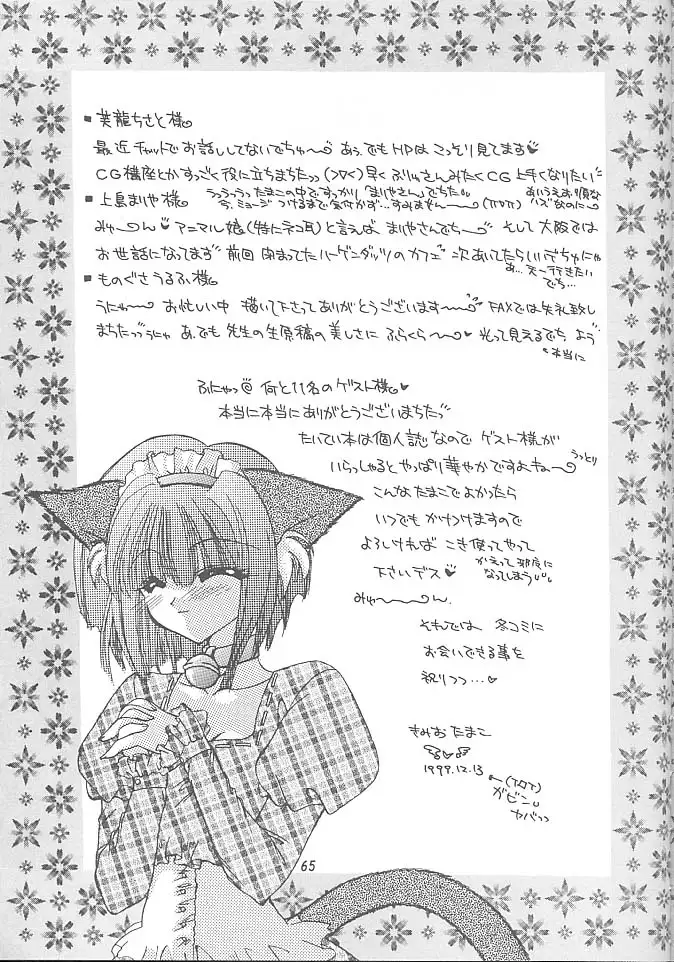 ■ 美龍ちさと様
最近チャットでお話ししてないでちゅ〜 あぅ でもHPは こっそり見てます♥
CG講座とかすっごく役に立ちまちたっ 早く さんみたくCG上手くなりたい
■ 上島まりや様
うっうっうっ たまこの中ですっかり「まりやさん」でちた
あいうえお順な
ハズなのに
今、ミュージ つけるまで気付かず…すみませんー (T□T)
みゅ〜ん♥ アニマル娘(特にネコ耳)と言えば、まりやさんでち〜 そして大阪では
お世話になってます 前回 閉まってたハーゲンダッツのカフェ 次あいてたらいいでちにゃ
あ… 行きたい
でち…
■ ものぐさうるふ様
うにゃ〜 お忙しい中 描いて下さってありがとうございます〜 FAXでは失礼致し
まちたっうにゃ あ、でも先生の生原稿の美しさに ふらくら〜♥ 光って見えるでち よう
本当に
ふにゃっ@ 何と11名のゲスト様♥
本当に本当にありがとうございまちたっ
たいてい本は個人誌なので ゲスト様が
いらっしゃるとやっぱり華やかですよねー
うっとり
こんなたまこでよかったら
いつでも かけつけますので
よろしければ こき使ってやって
下さいデス♥
かえって邪魔に
なってしまう
みゅ〜ん.
それでは 冬コミに
お会いできる事を
祝りつつ…♥
きみおたまこ
1999.12.13
←(T□T)
ガビン
ヤバっっ
65